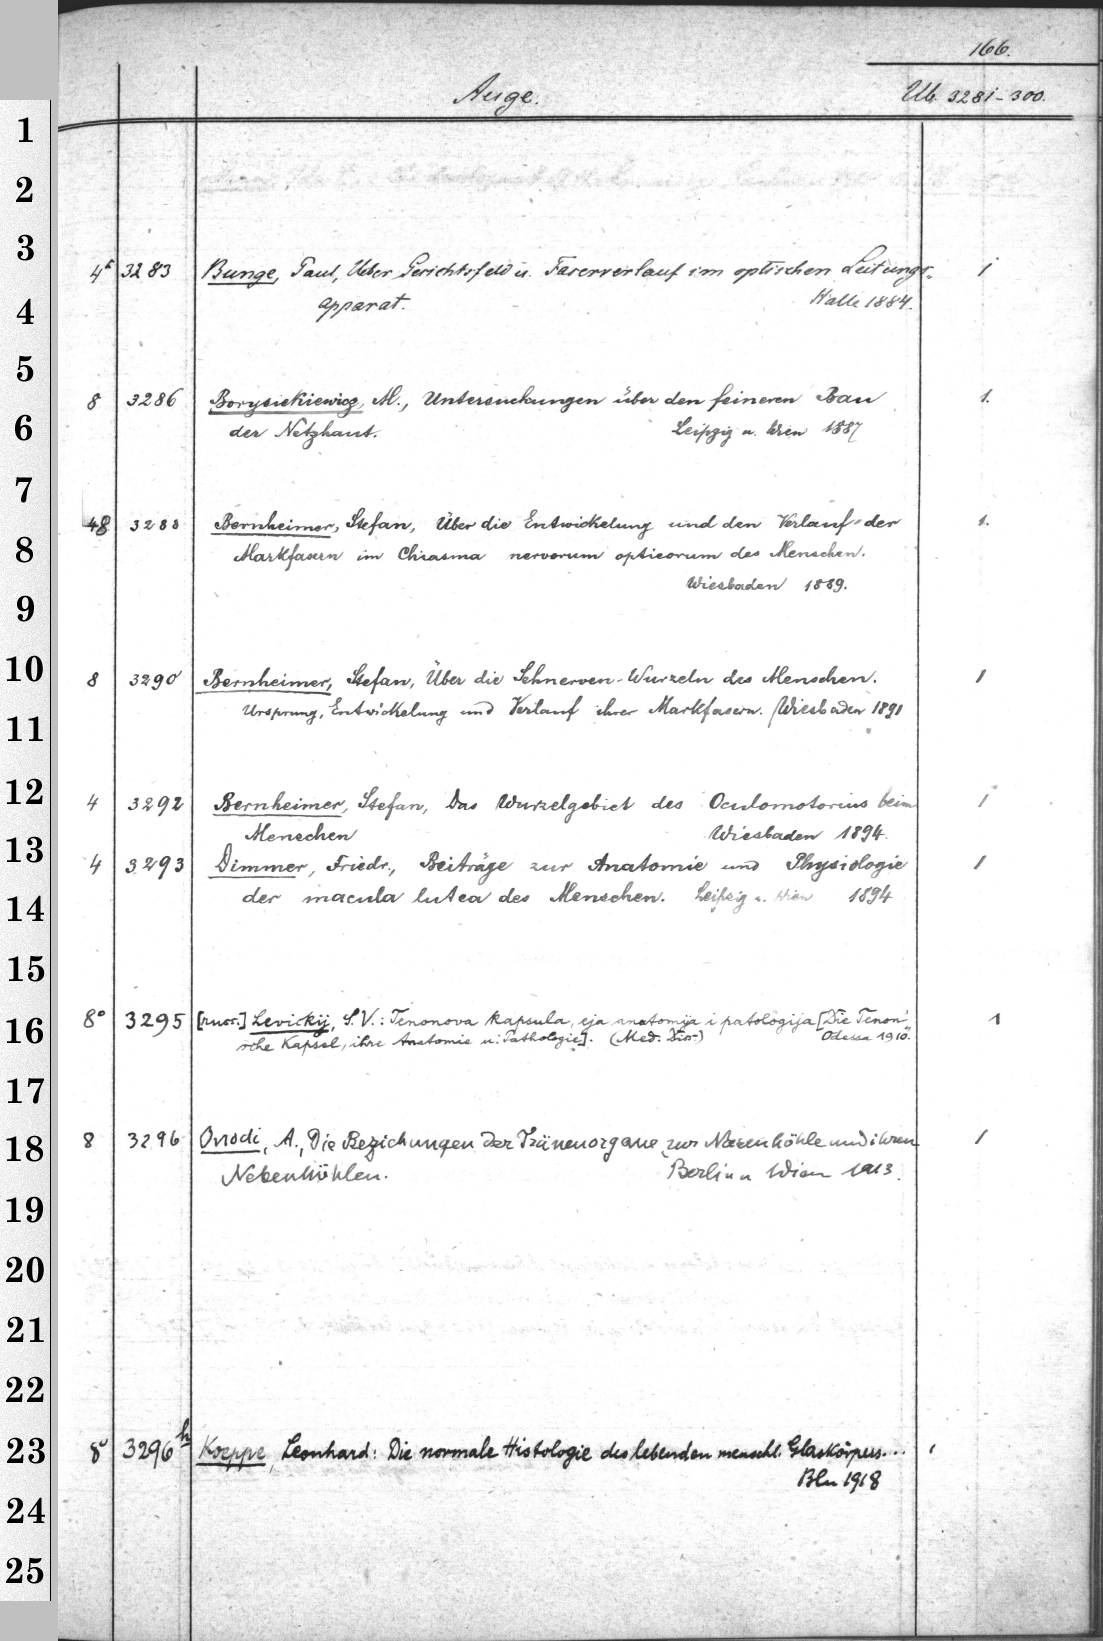 166.
Auge.
Ub. 3281-300.
1
2
3
4
5
6
7
8
9
10
11
12
13
14
15
16
17
18
19
20
21
22
23
24
25
4° 3283 Bunge, Paul, Ueber Gesichtsfeld u. Faserverlauf im optischen Leitungs- 1
apparat. Halle 1884.
8 3286 Borysiekiewicz, M., Untersuchungen über den feineren Bau 1.
der Netzhaut. Leipzig u. Wien 1887
48 3288 Bernheimer, Stefan, Über die Entwickelung und den Verlauf der 1.
Markfasern im Chiasma nervorum opticorum des Menschen.
Wiesbaden 1889.
8 3290 Bernheimer, Stefan, Über die Sehnerven-Wurzeln des Menschen. 1
Ursprung, Entwickelung und Verlauf ihrer Markfasern. Wiesbaden 1891
4 3292 Bernheimer, Stefan, Das Wurzelgebiet des Oculomotorius beim 1
Menschen Wiesbaden 1894.
4 3293 Dimmer, Friedr., Beiträge zur Anatomie und Physiologie 1
der macula lutea des Menschen. Leipzig u. Wien 1894
8° 3295 [russ.] Levickij, S.V.: Tenonova kapsula, eja anatomija i patologija [Die Tenon'- 1
sche Kapsel, ihre Anatomie u. Pathologie]. (Med. Diss.) Odessa 1910.
8 3296 Onodi, A., Die Beziehungen der Tränenorgane zur Nasenhöhle und ihren 1
Nebenhöhlen. Berlin u Wien 1913.
8° 3296h Koeppe, Leonhard: Die normale Histologie des lebenden menschl. Glaskörpers... 1
Bln 1918